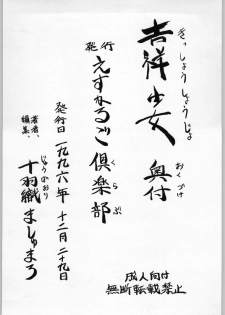 きっしょうしょうじょ おくづけ
吉祥少女 奥付
発行
えすかるご倶楽部
くらぶ
発行日 一九九六年 十二月二十九日
著者、
編集、
十羽織ましゅまろ
成人向け
無断転載禁止